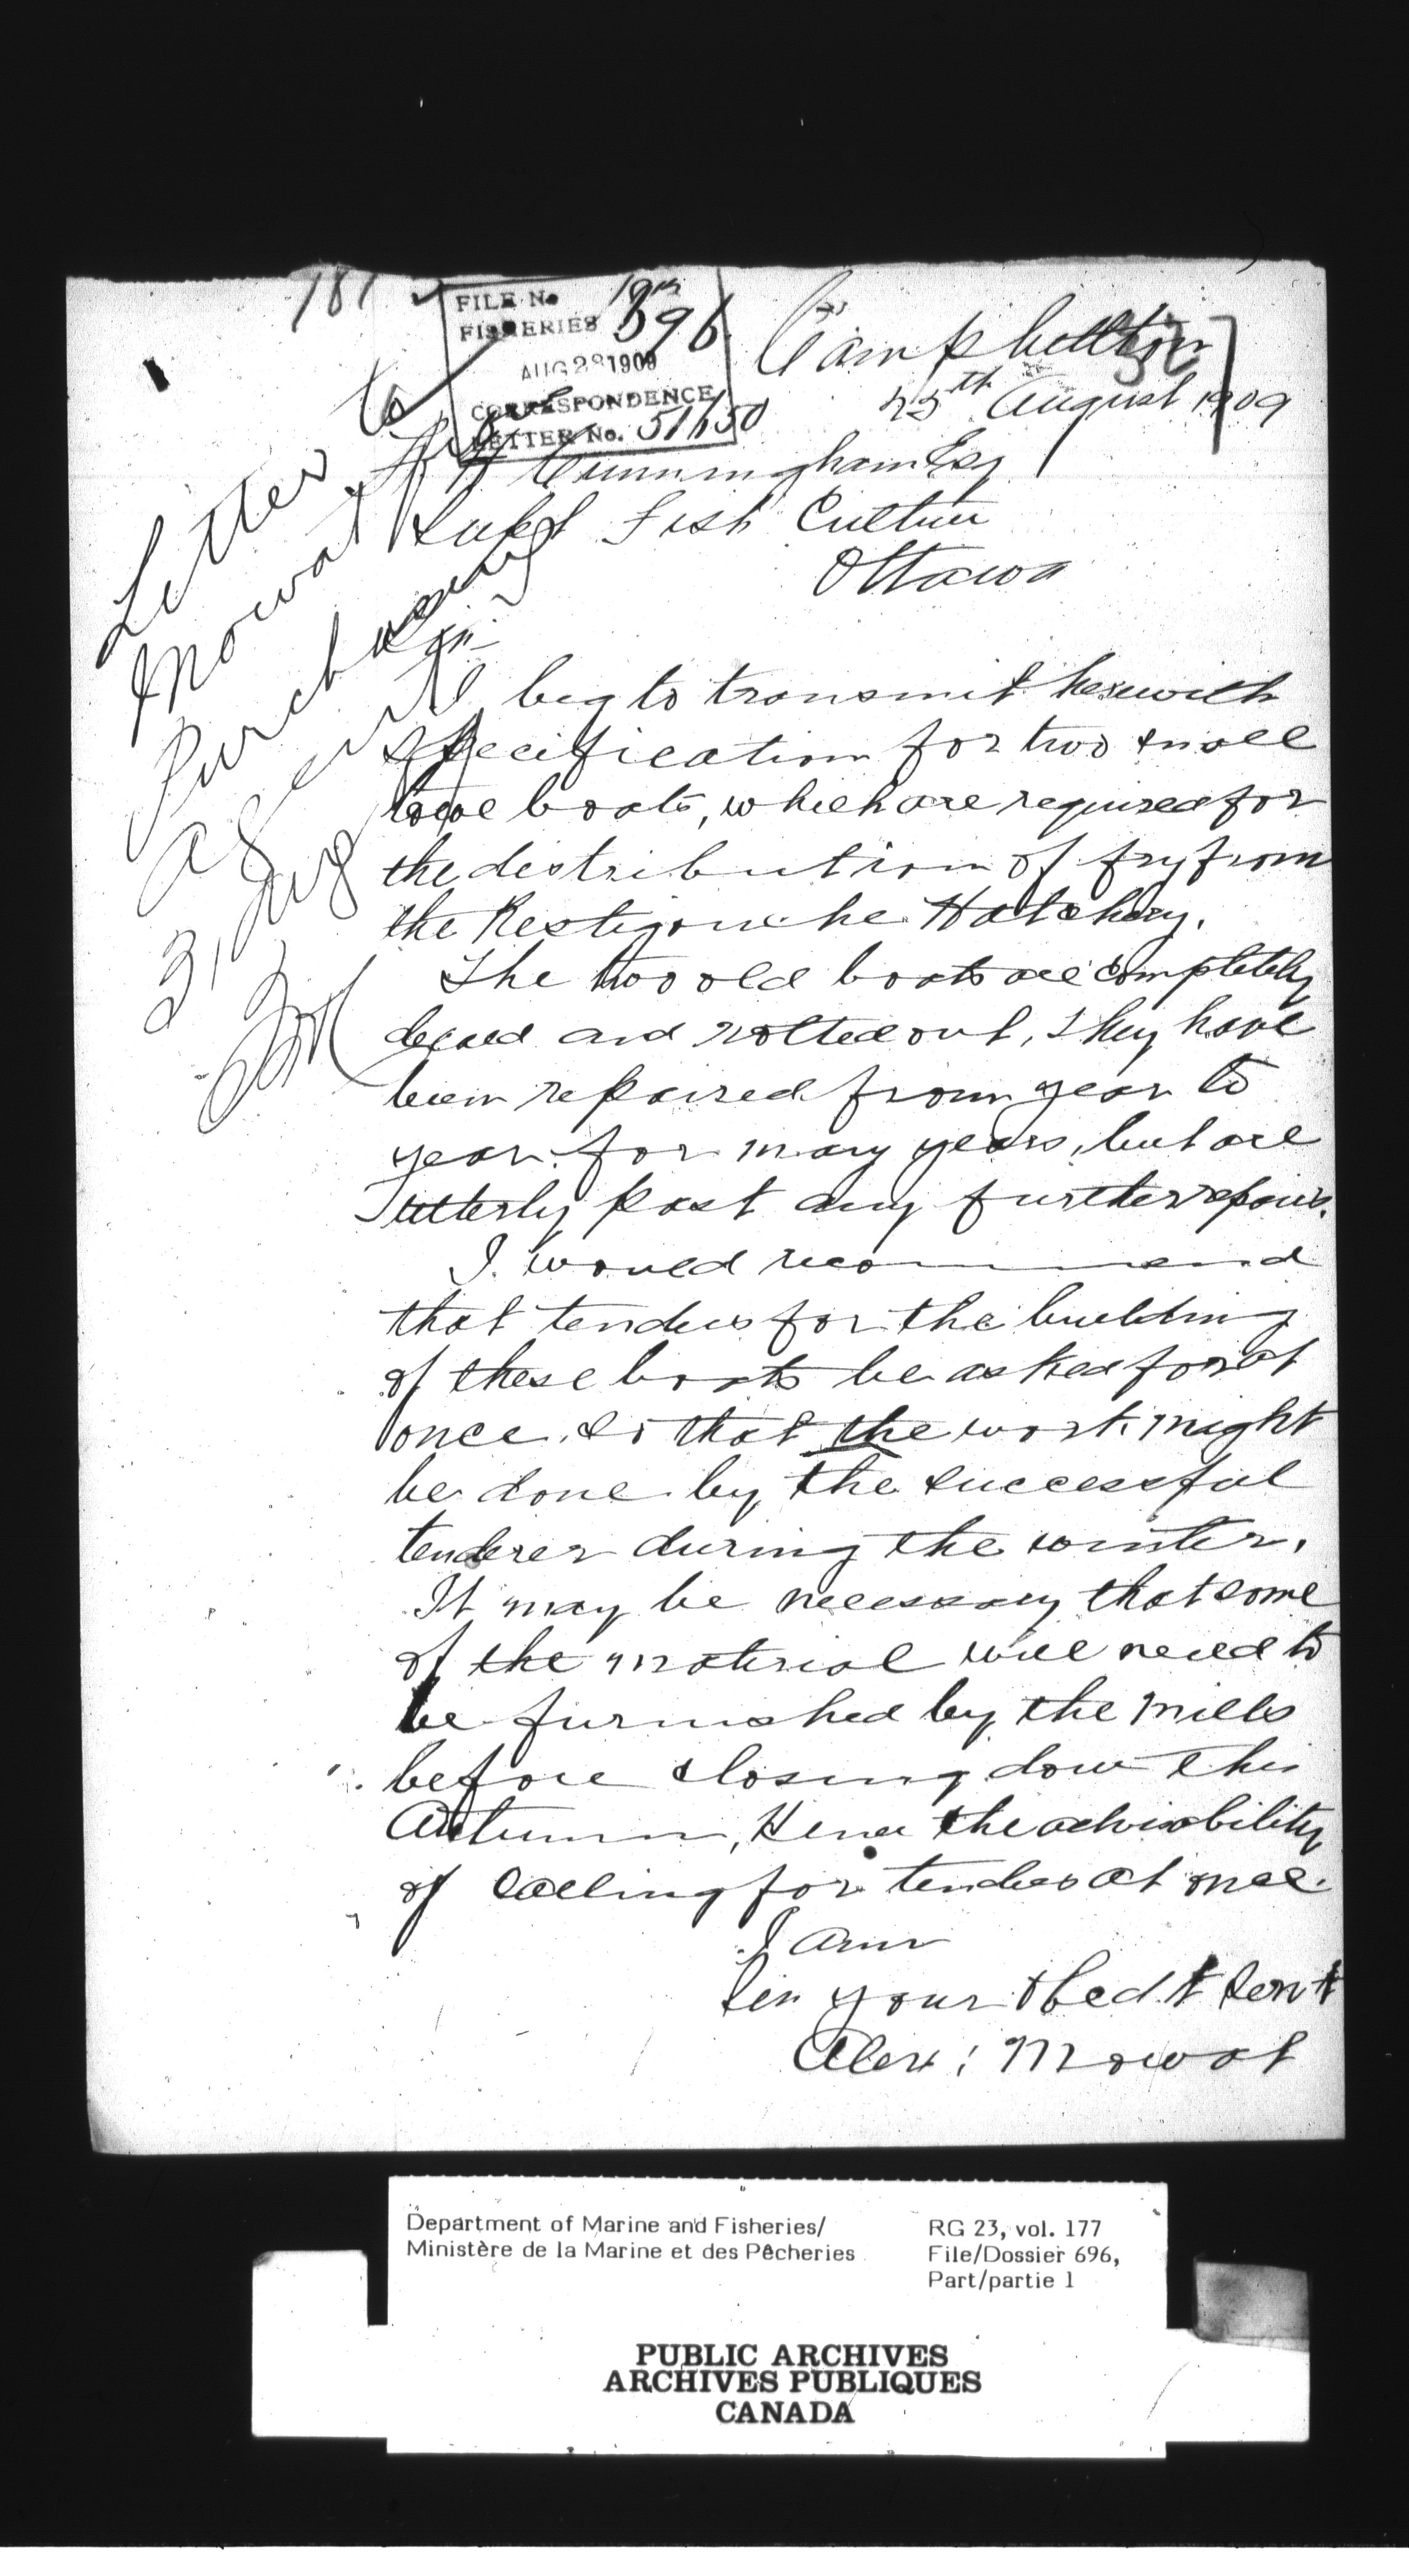 181
FILE No
FISHERIES 696
AUG 28 1909
CORRESPONDENCE
LETTER No. 51650
Campbellton
25th August 1909
Cunningham Esq
Supt Fish Culture
Ottawa
Sir
I beg to transmit herewith
specification for two small
boats, which are required for
the distribution of fry from
the Restigouche Hatchery.
The two old boats are completely
decaed and rotted out, they have
been repaired from year to
year for many years, but are
utterly past any further repair.
I would recommend
that tenders for the building
of these boats be asked for at
once, so that the work might
be done by the successful
tenderer during the winter.
It may be necessary that some
of the material will need to
be furnished by the mills
before closing down this
Autumn, Hence the advisability
of calling for tenders at once.
I am
Sir your obed't serv't
Alex: Mowat
Letter to
Mowat
Purchasing
agent
31 Aug
Department of Marine and Fisheries/
Ministère de la Marine et des Pêcheries
RG 23, vol. 177
File/Dossier 696,
Part/partie 1
PUBLIC ARCHIVES
ARCHIVES PUBLIQUES
CANADA